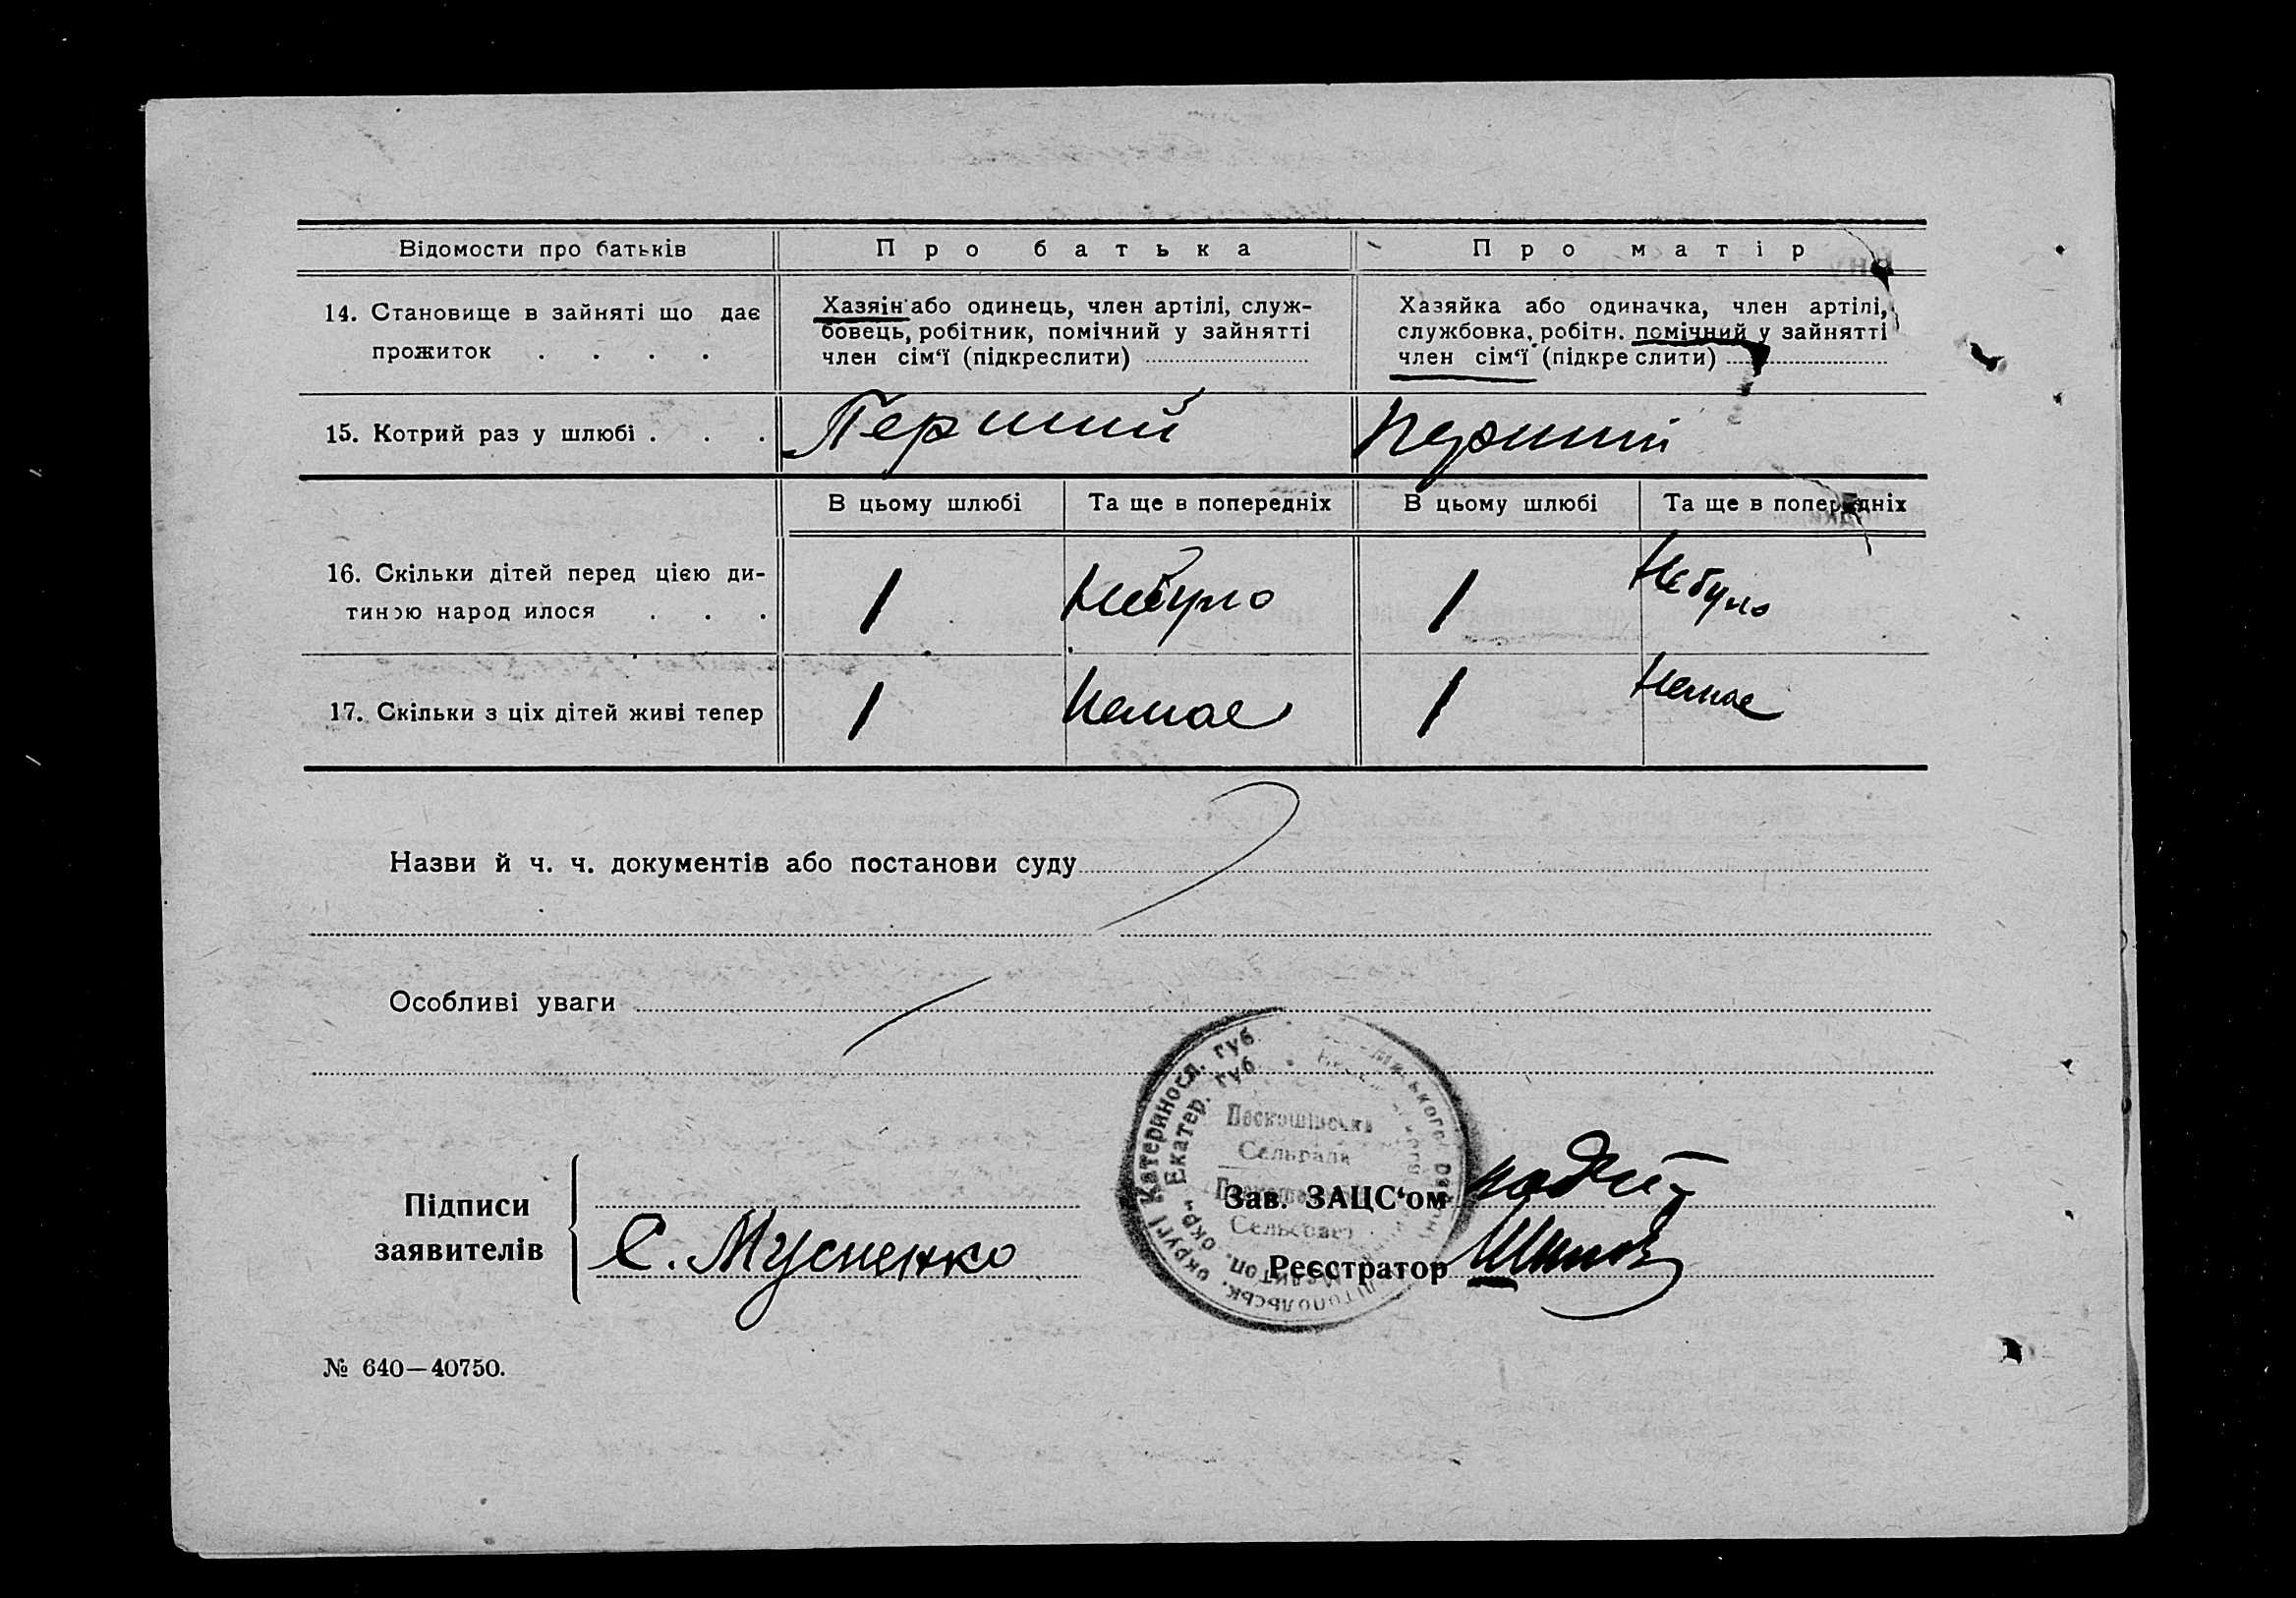 Відомости про батьків
Про батька
Про матір
14. Становище в зайняті що дає
прожиток . . . .
Хазяін або одинець, член артілі, служ-
бовець, робітник, помічний у зайнятті
член сім‘ї (підкреслити)
Хазяйка або одиначка, член артілі,
службовка, робітн. помічний у зайнятті
член сім‘ї (підкре слити)
15. Котрий раз у шлюбі . . .
Перший
Перший
В цьому шлюбі
Та ще в попередніх
В цьому шлюбі
Та ще в попередніх
16. Скільки дітей перед цією ди-
тиною народ илося . . .
1
Небуло
1
Небуло
17. Скільки з ціх дітей живі тепер
1
Немає
1
Немає
Назви й ч. ч. документів або постанови суду
Особливі уваги
округі Катеринося. губ.
окр. Екатер. губ.
Сельрада
Сельсовет
Підписи
заявителів
С. Мусиенко
Зав. ЗАЦС‘ом
Реєстратор
№ 640—40750.